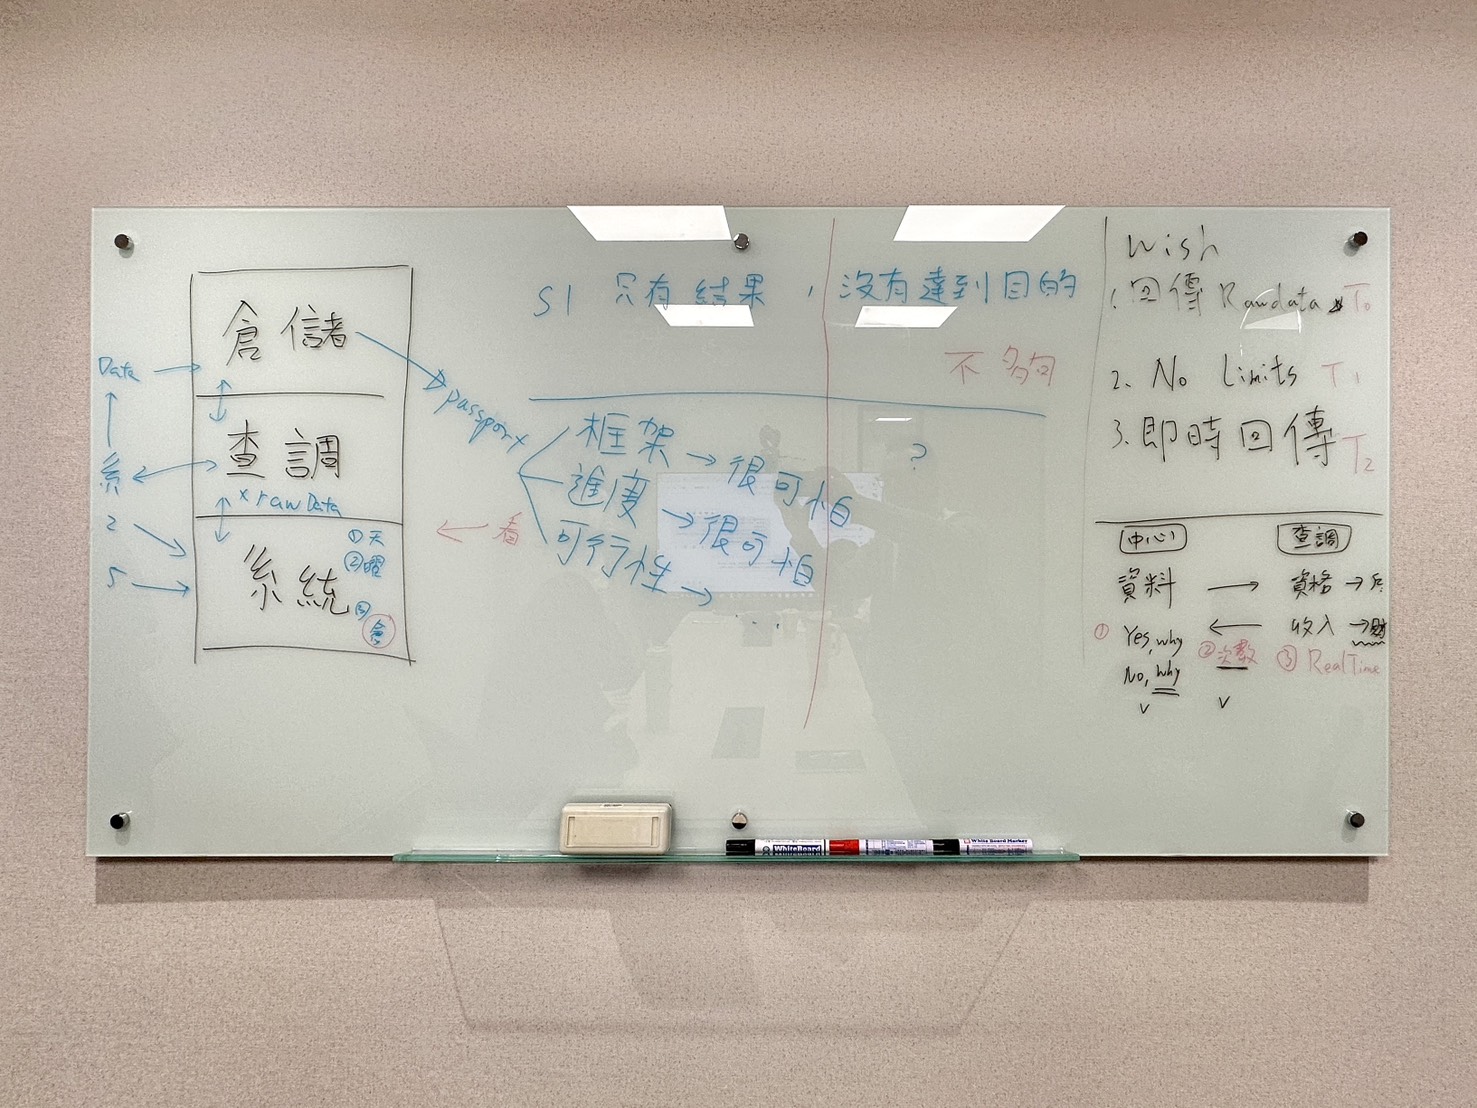 倉儲
查調
x raw Data
系統
①天
②曜
③
倉
Data
系
2
5
看
passport
S1 只有結果，沒有達到目的
不夠
框架 → 很可怕
進度 → 很可怕
可行性 →
?
Wish
1. 回傳 Rawdata T0
2. No Limits T1
3. 即時回傳 T2
中心 查調
資料 → 資格 →
① Yes, why ← 收入 → 財
No, why ②次數 ③ RealTime
v v
WhiteBoard
White Board Marker